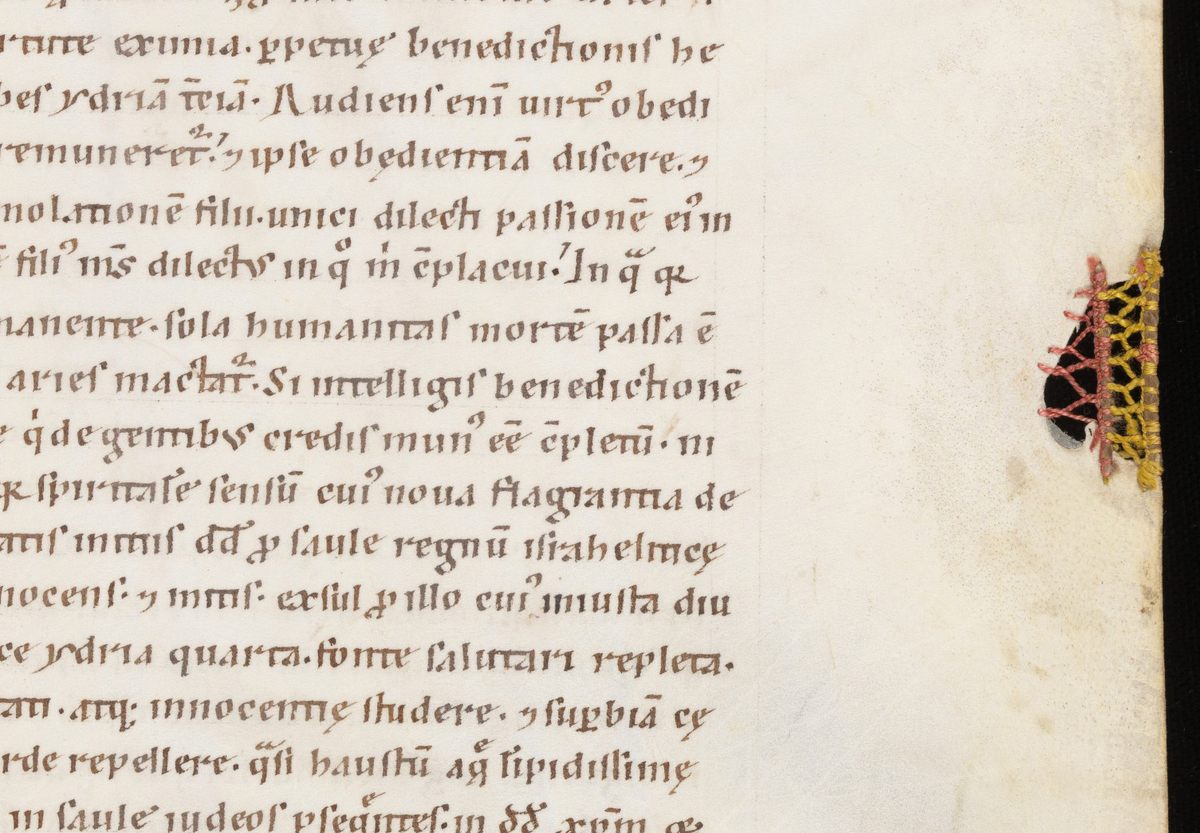 exımıa. ꝑpetuę benedictionis he
bes ydriā t̄ciā. Audiens enī uirtꝰ obedi
remuneret᷑. ⁊ ipse obędientiā discere. ⁊
molationē filii. unici dilecti passionē eiꝰ in
filiꝰ m̄s dilectus in qͦ m̄ c̄placui. In qͣ
manente. sola humanitas mortē passa ē
aries mactat᷑. Si intelligis benedictionē
qͥ de gentibus credis munꝰ eē c̄pletū. in
sp̄ritale sensū cuiꝰ noua flagrantia de
tatis intus dd̄ ꝓ saule regnū israheliticę
nocens. ⁊ mitis. exsul ꝓ illo cuiꝰ iniusta diu
ce ydria quarta. fonte salutari repleta.
tati. atq; innocentię studere. ⁊ suꝑbiā cę
rde repellere. qͣsi haustū aqͤ lipidissimę
in saule iudeos pseqͤntes. in dd̄ xpm̄